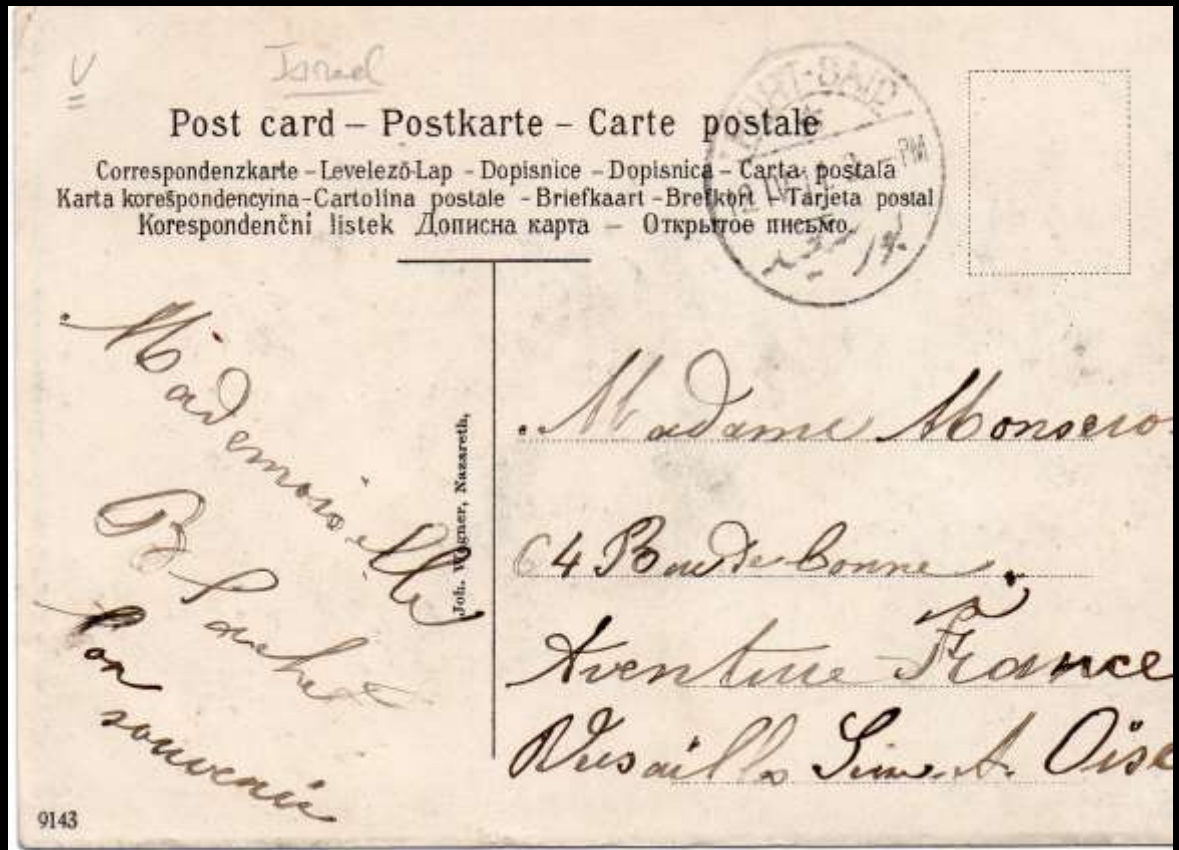 V
Israel
Post card – Postkarte – Carte postale
Correspondenzkarte – Levelező-Lap – Dopisnice – Dopisnica – Carta postala
Karta korešpondencyina – Cartolina postale – Briefkaart – Brefkort – Tarjeta postal
Korespondenčni listek Дописна карта – Открытое письмо.
PORT-SAID
PM
Mademoiselle
Blanche
bon
souvenir
Joh. Wagner, Nazareth.
Madame
64 Rue de bonne
Aventure France
Versailles Seine. et. Oise
9143